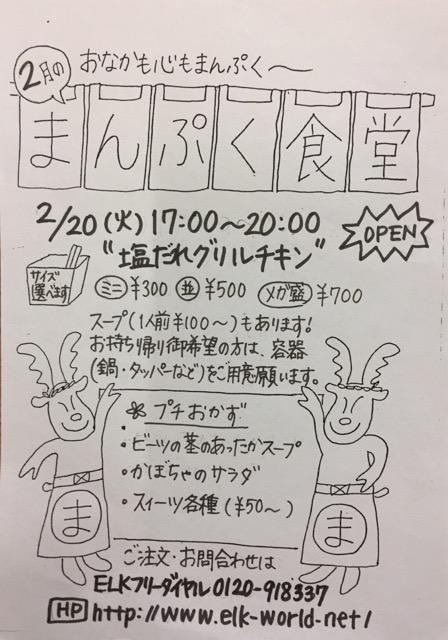 2月の
おなかも心もまんぷく〜
まんぷく食堂
2/20(火)17:00〜20:00
OPEN
"塩だれグリルチキン"
サイズ
選べます
ミニ ¥300 並 ¥500 メガ盛 ¥700
スープ(1人前¥100〜)もあります!
お持ち帰り御希望の方は、容器
(鍋・タッパーなど)をご用意願います。
* プチおかず
・ビーツの茎のあったかスープ
・かぼちゃのサラダ
・スイーツ各種(¥50〜)
ま
ま
ご注文・お問合わせは
ELKフリーダイヤル 0120-918337
HP http://www.elk-world-net/